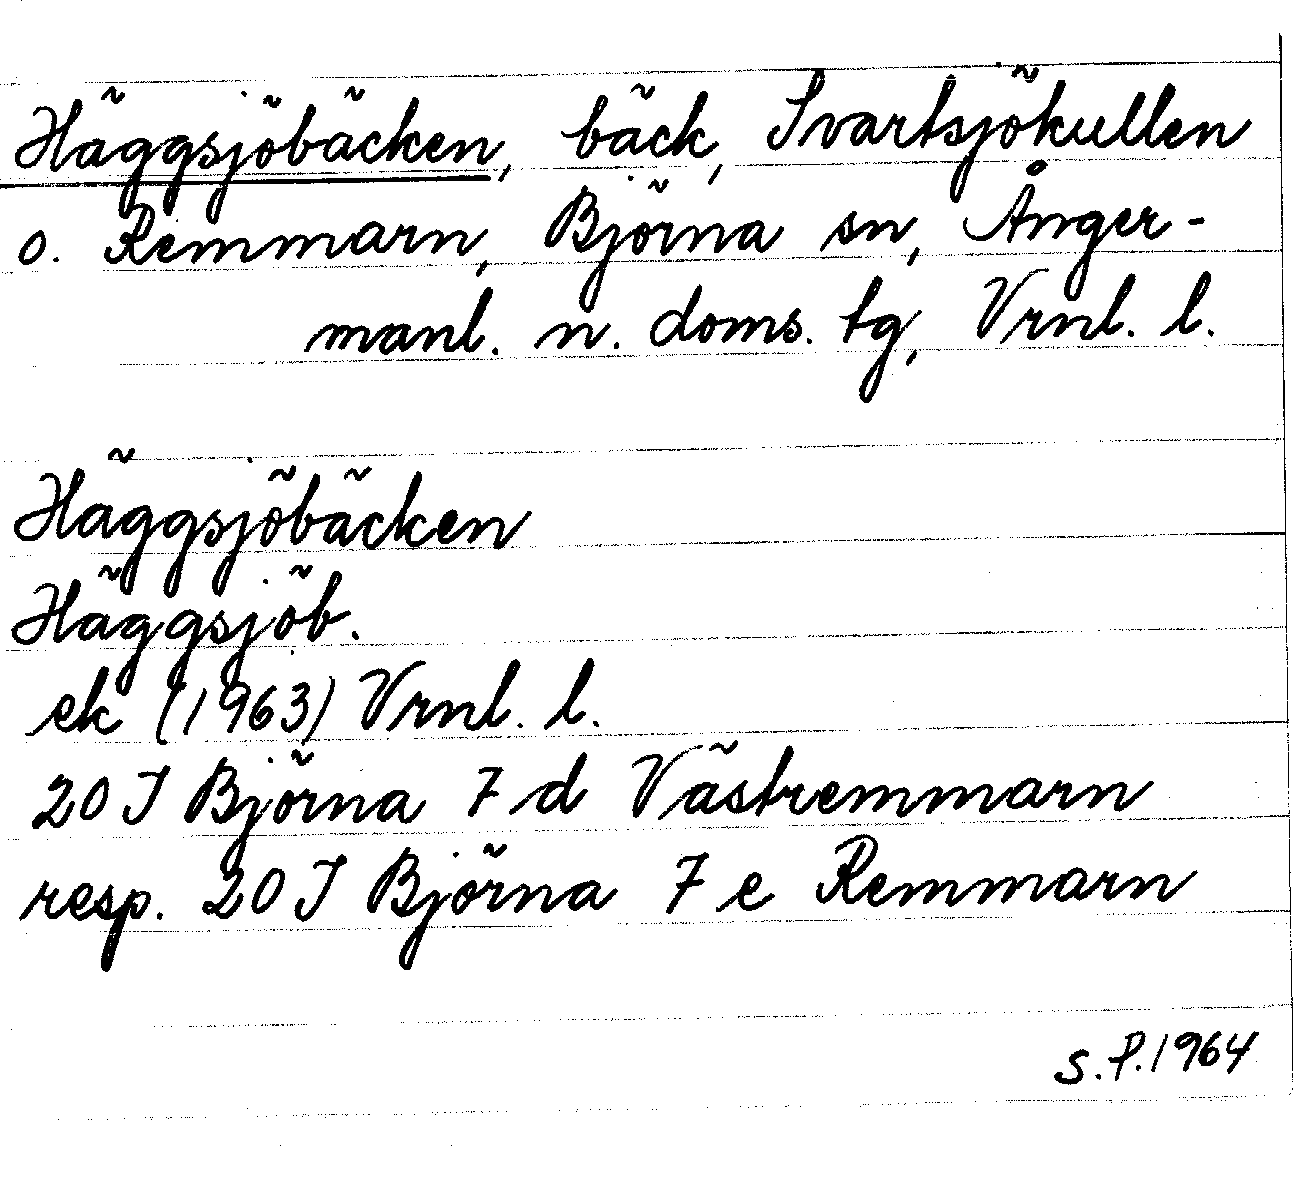 Häggsjöbäcken, bäck, Svartsjökullen
o. Remmarn, Björna sn, Ånger-
manl. n. doms. tg, Vrnl. l.
Häggsjöbäcken
Häggsjöb.
ek (1963) Vrnl. l.
20 J Björna 7 d Västremmarn
resp. 20 J Björna 7 e Remmarn
S.P.1964